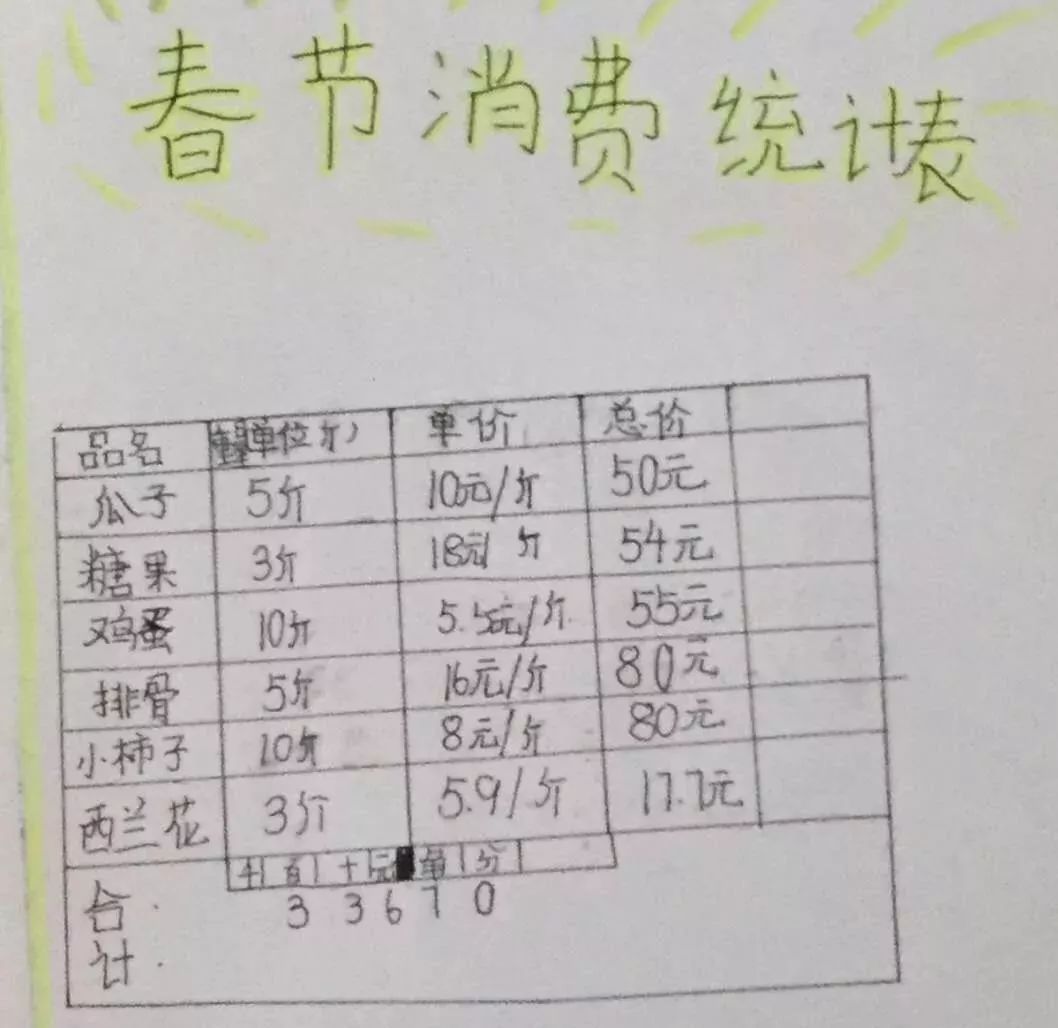 春节消费统计表
品名 单位(斤) 单价 总价
瓜子 5斤 10元/斤 50元
糖果 3斤 18元/斤 54元
鸡蛋 10斤 5.5元/斤 55元
排骨 5斤 16元/斤 80元
小柿子 10斤 8元/斤 80元
西兰花 3斤 5.9/斤 17.7元
千百十元角分
合计 3 3 6 7 0